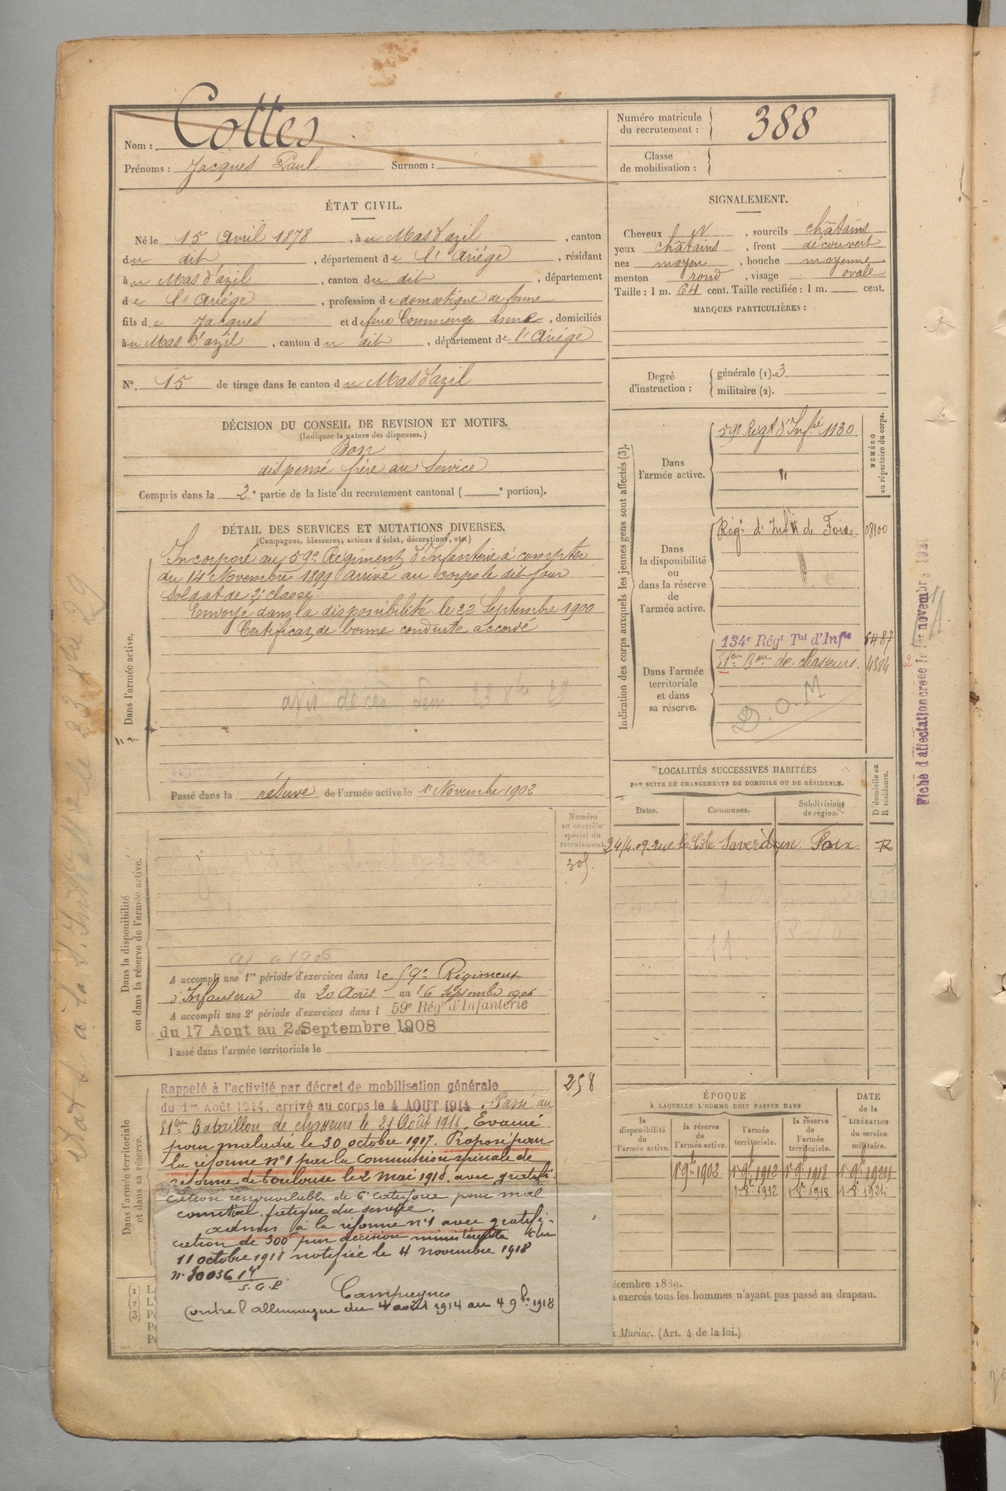 Nom : Cottes
Prénoms : Jacques Paul Surnom :
Numéro matricule du recrutement : 388
Classe de mobilisation :
ÉTAT CIVIL.
Né le 15 Avril 1878, à u Mas d'azil, canton
du dit, département de l'Ariége, résidant
à u Mas d'azil, canton du dit, département
de l'Ariége, profession de domestique de ferme
fils de Jacques et de feue Commenge Anne, domiciliés
à u Mas d'azil, canton du dit, département de l'Ariége
N° 15 de tirage dans le canton du Mas d'azil
DÉCISION DU CONSEIL DE REVISION ET MOTIFS.
(Indiquer la nature des dispenses.)
Bon
dispensé frère au service
Compris dans la 2e partie de la liste du recrutement cantonal ( e portion).
SIGNALEMENT.
Cheveux , sourcils châtains
yeux châtains, front découvert
nez moyen, bouche moyenne
menton rond, visage ovale
Taille : 1 m. 64 cent. Taille rectifiée : 1 m. cent.
MARQUES PARTICULIÈRES :
Degré d'instruction : générale (1). 3
militaire (2).
DÉTAIL DES SERVICES ET MUTATIONS DIVERSES.
(Campagnes, blessures, actions d'éclat, décorations, etc.)
Dans l'armée active.
Incorporé au 59e Régiment d'Infanterie à compter
du 14 Novembre 1899 arrivé au corps le dit jour
Soldat de 2e classe
Envoyé dans la disponibilité le 22 Septembre 1900
Certificat de bonne conduite accordé
avis de
Passé dans la réserve de l'armée active le 1er Novembre 1902
Indication des corps auxquels les jeunes gens sont affectés (3).
NUMÉRO au répertoire du corps.
Dans l'armée active. 59e Régt d'Infie 1130
Dans la disponibilité ou dans la réserve de l'armée active. Régt d'Infie de Foix 08100
Dans l'armée territoriale et dans sa réserve. 134e Régt Tal d'Infie 6487
Bon de chasseurs
D.O.M
Fiche d'affectation créée le 1er novembre
LOCALITÉS SUCCESSIVES HABITÉES
PAR SUITE DE CHANGEMENTS DE DOMICILE OU DE RÉSIDENCE.
Dates. Communes. Subdivisions de région. D domicile ou R résidence.
Saverdun Foix R
Numéro au contrôle spécial du recrutement
305
Dans la disponibilité ou dans la réserve de l'armée active.
A accompli une 1re période d'exercices dans le 59e Régiment
d'Infanterie du 20 Août au 16 Septembre 1906
A accompli une 2e période d'exercices dans l 59e Régt d'Infanterie
du 17 Aout au 2 Septembre 1908
Passé dans l'armée territoriale le
Dans l'armée territoriale et dans sa réserve.
258
Rappelé à l'activité par décret de mobilisation générale
du 1er Août 1914, arrivé au corps le 4 AOUT 1914. Passé au
Bataillon de chasseurs le 21 Août 1916. Evacué
pour maladie le 30 octobre 1917. Proposé pour
la réforme n°1 par la Commission spéciale de
réforme de Toulouse le 2 mai 1918. avec gratifi-
cation renouvelable de 6e catégorie pour mal
comitial. fatigue du service.
Admis à la réforme n°1 avec gratifi-
cation de 300f par décision ministérielle du
11 octobre 1918 notifiée le 4 novembre 1918
n° 30036
S.G.P.
Campagnes
Contre l'allemagne du 4 août 1914 au 4 9bre 1918
ÉPOQUE
À LAQUELLE L'HOMME DOIT PASSER DANS
DATE de la LIBÉRATION du service militaire.
la disponibilité de l'armée active. la réserve de l'armée active. l'armée territoriale. la réserve de l'armée territoriale.
1er 9bre 1902 1er 9bre 1912 1er 9bre 1918 1er 9bre 1924
1912 1918 1924
écembre 1889.
exercés tous les hommes n'ayant pas passé au drapeau.
Marine. (Art. 4 de la loi.)